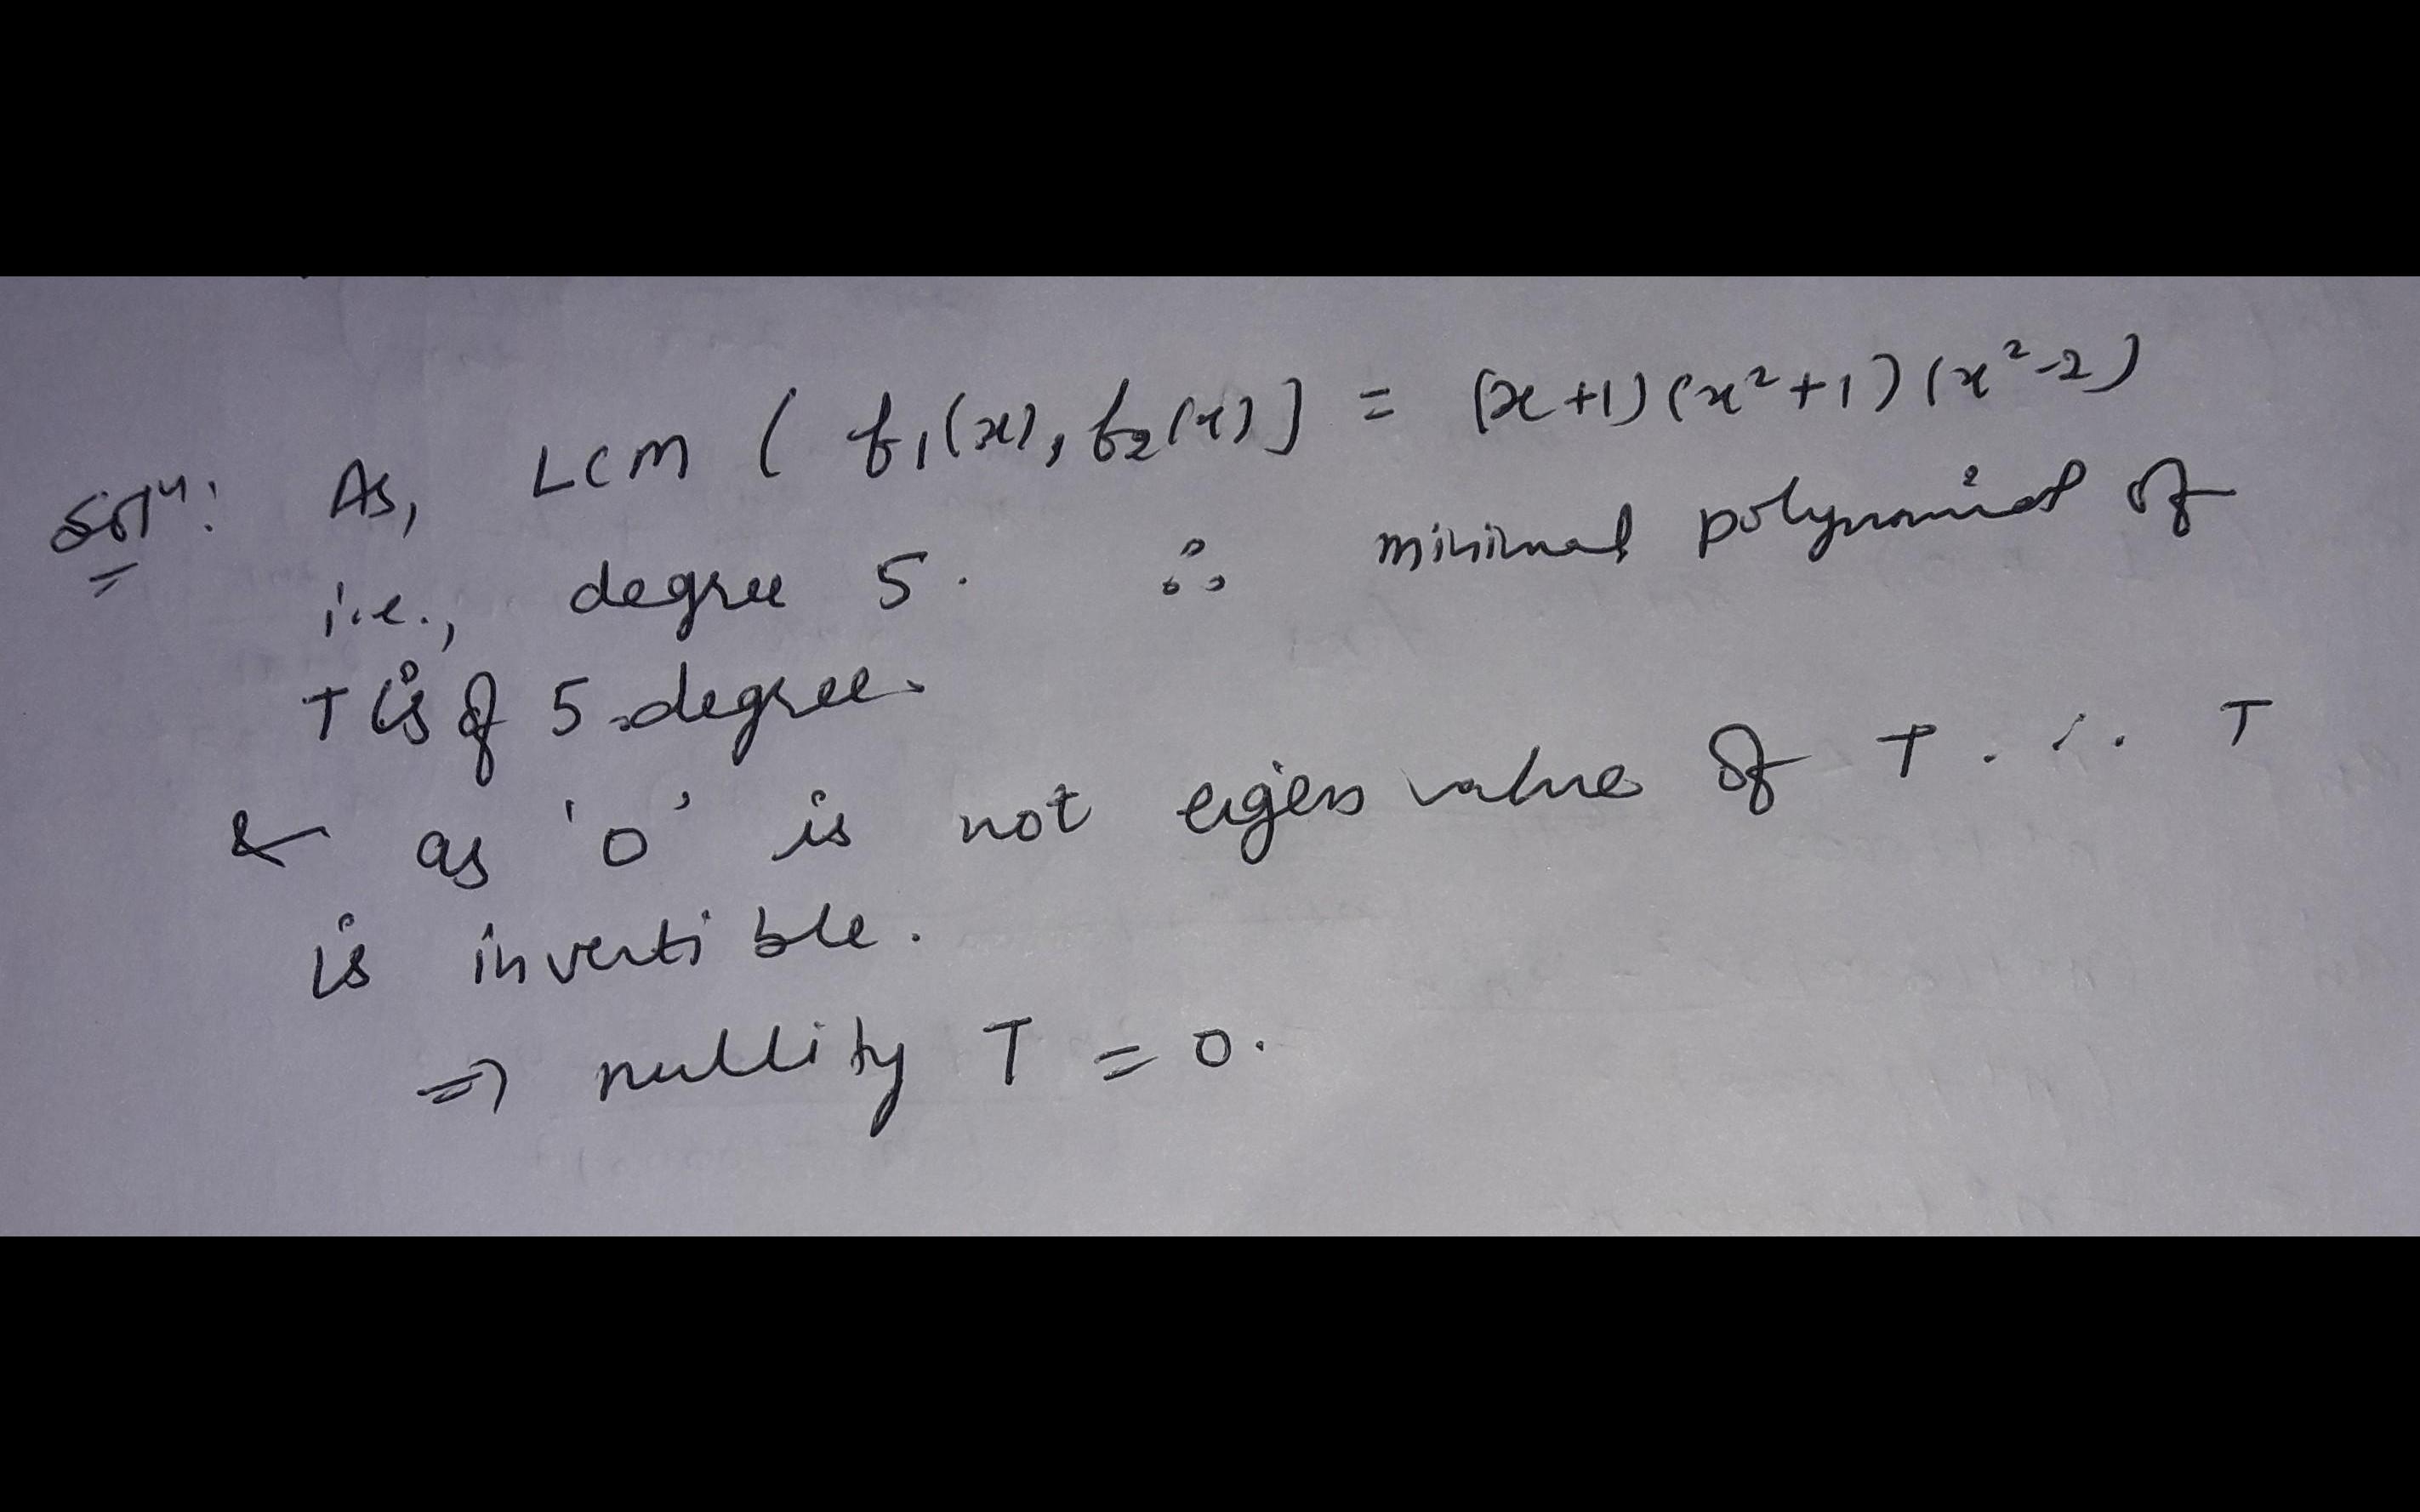 Solⁿ: As, LCM ( f₁(x), f₂(x) ] = (x+1)(x²+1)(x²-2)
i.e., degree 5. ∴ minimal polynomial of
T is of 5 degree.
& as '0' is not eigen value of T. ∴ T
is invertible.
⇒ nullity T = 0.